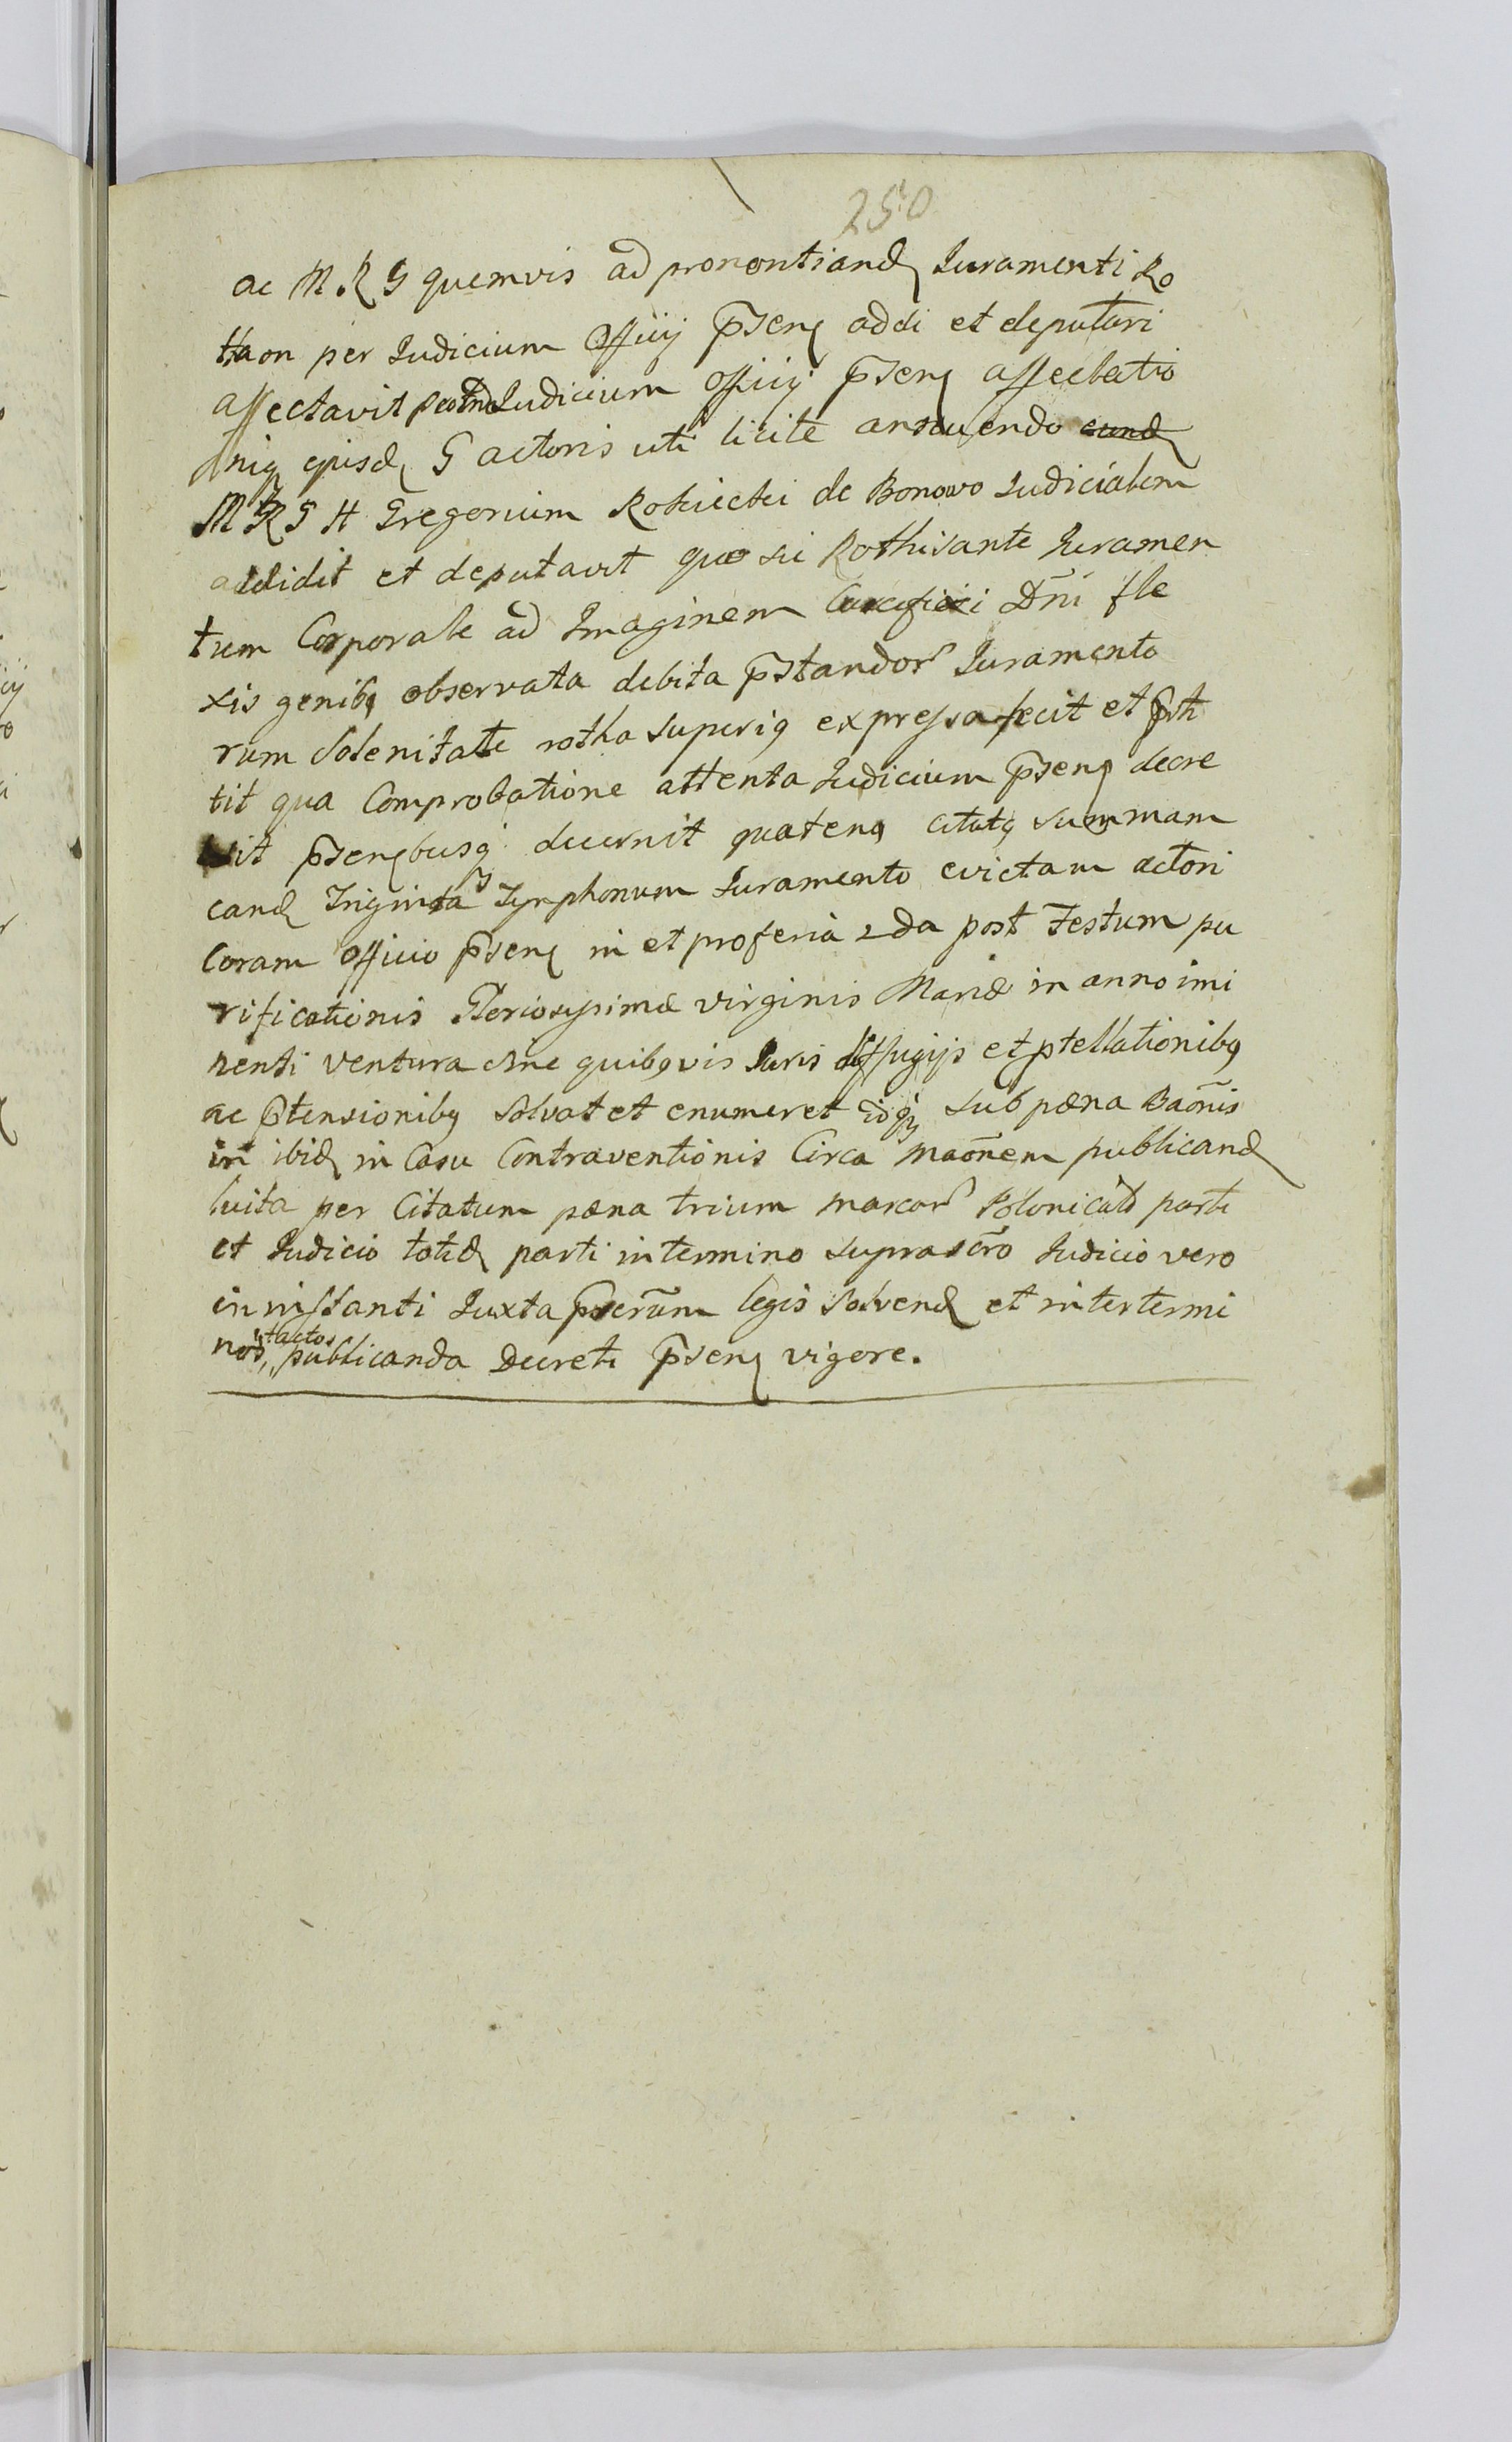 250
ac M R G quemvis ad pronontiand Juramenti Ro
tham per Judicium Officij p̄sens addi et deputari
affectavit Judicium Officij p̄sens affectatio
niq ejusd G actoris uti licite annuendo eund
M R G H Gregorium de Bonowo Judicialem
addidit et deputavit quo sic Rothisante Juramen
tum Corporale ad Imaginem Crucifixi Dn̄i fle
xis genibq observata debita p̄standor Juramento
rum Solenitate rotha superiq expressa fecit et p̄sti
tit qua Comprobatione attenta Judicium p̄sens decre
vit p̄sensbusq decernit quatenq citatq summam
eand Triginta Tymphonum Juramento evictam actori
Coram Officio p̄sens in et pro feria 2da post Festum pu
rificationis Gloriosissimæ virginis Mariæ in anno imi
nenti ventura sine quibqvis Juris diffugijs et p̄tellationibq
ac p̄tensionibq Solvat et enumeret idq sub pæna Bao̅nis
in ibid in Casu Contraventionis Circa mao̅nem publicand
luita per Citatum pæna trium marcar Polonical parti
et Judicio totid parti in termino suprascr̄o Judicio vero
in instanti Juxta p̄scr̄um legis solvend et inter termi
nos tactos publicanda Decreti p̄sens vigore.